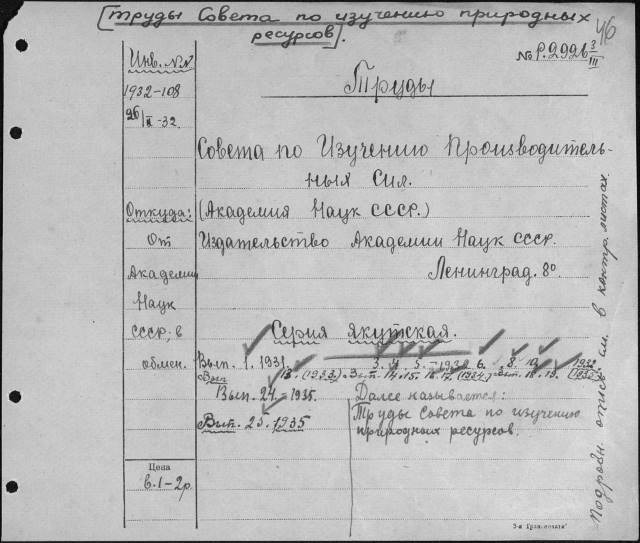 [Труды Совета по изучению природных
ресурсов].
46
Инв. №№
№ Р.2926 3/III
1932-108
Труды
26/II-32.
Совета по Изучению Производитель-
ных Сил.
Откуда:
(Академия Наук СССР.)
От
Издательство Академии Наук СССР.
Академии
Ленинград. 8º
Наук
СССР; в
Серия якутская.
обмен.
Вып. 1. 1931. 3. 4. 5. - 1932 6. 8. 10. 1932
Вып. 13. (1933). 14. 15. 16. 17. 18. 19.
Вып. 24. - 1935.
Далее называется:
Вып. 23. 1935
Труды Совета по изучению
природных ресурсов.
Цена
в.1-2р.
Подробн. опись см. в контр. листах.